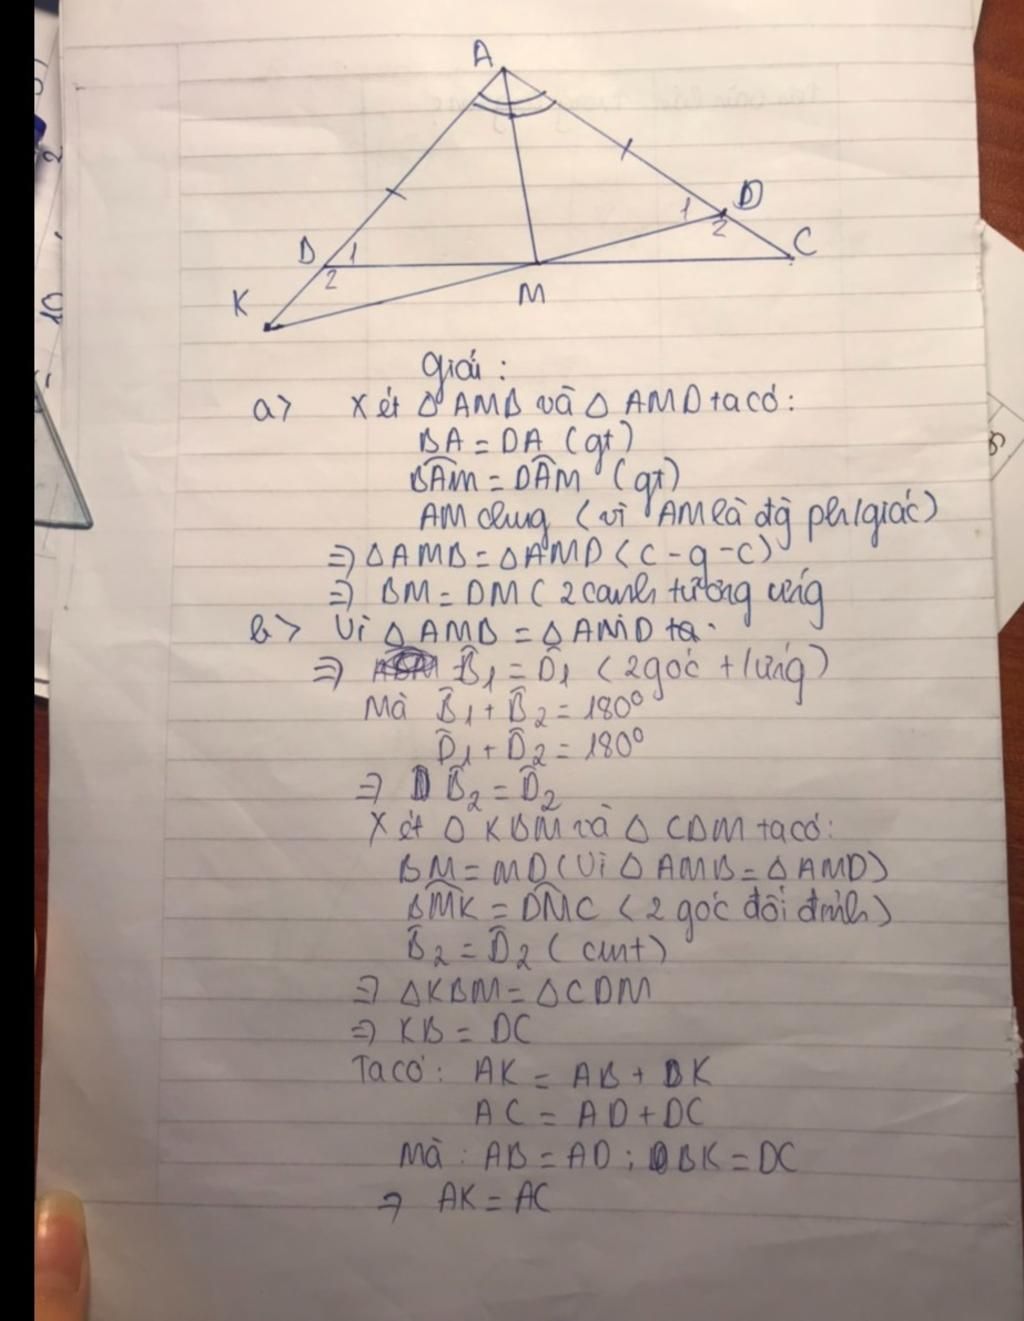 A
B 1
2
1 D
2
C
K
M
Giải :
a> Xét △ AMB và △ AMD ta có:
BA = DA (gt)
BÂM = DÂM (gt)
AM chung (vì AM là đg ph/giác)
=> △AMB = △AMD (c-g-c)
=> BM = DM ( 2 cạnh tương ứng
b> Vì △ AMB = △AMD ta
=> B̂1 = D̂1 (2 góc t/ứng)
Mà B̂1 + B̂2 = 180°
D̂1 + D̂2 = 180°
=> B̂2 = D̂2
Xét △ KBM và △ CDM ta có:
BM = MD (Vì △ AMB = △ AMD)
BM̂K = DM̂C (2 góc đối đỉnh)
B̂2 = D̂2 ( cmt)
=> △KBM = △CDM
=> KB = DC
Ta có: AK = AB + BK
AC = AD + DC
Mà : AB = AD ; BK = DC
=> AK = AC
10
2
8